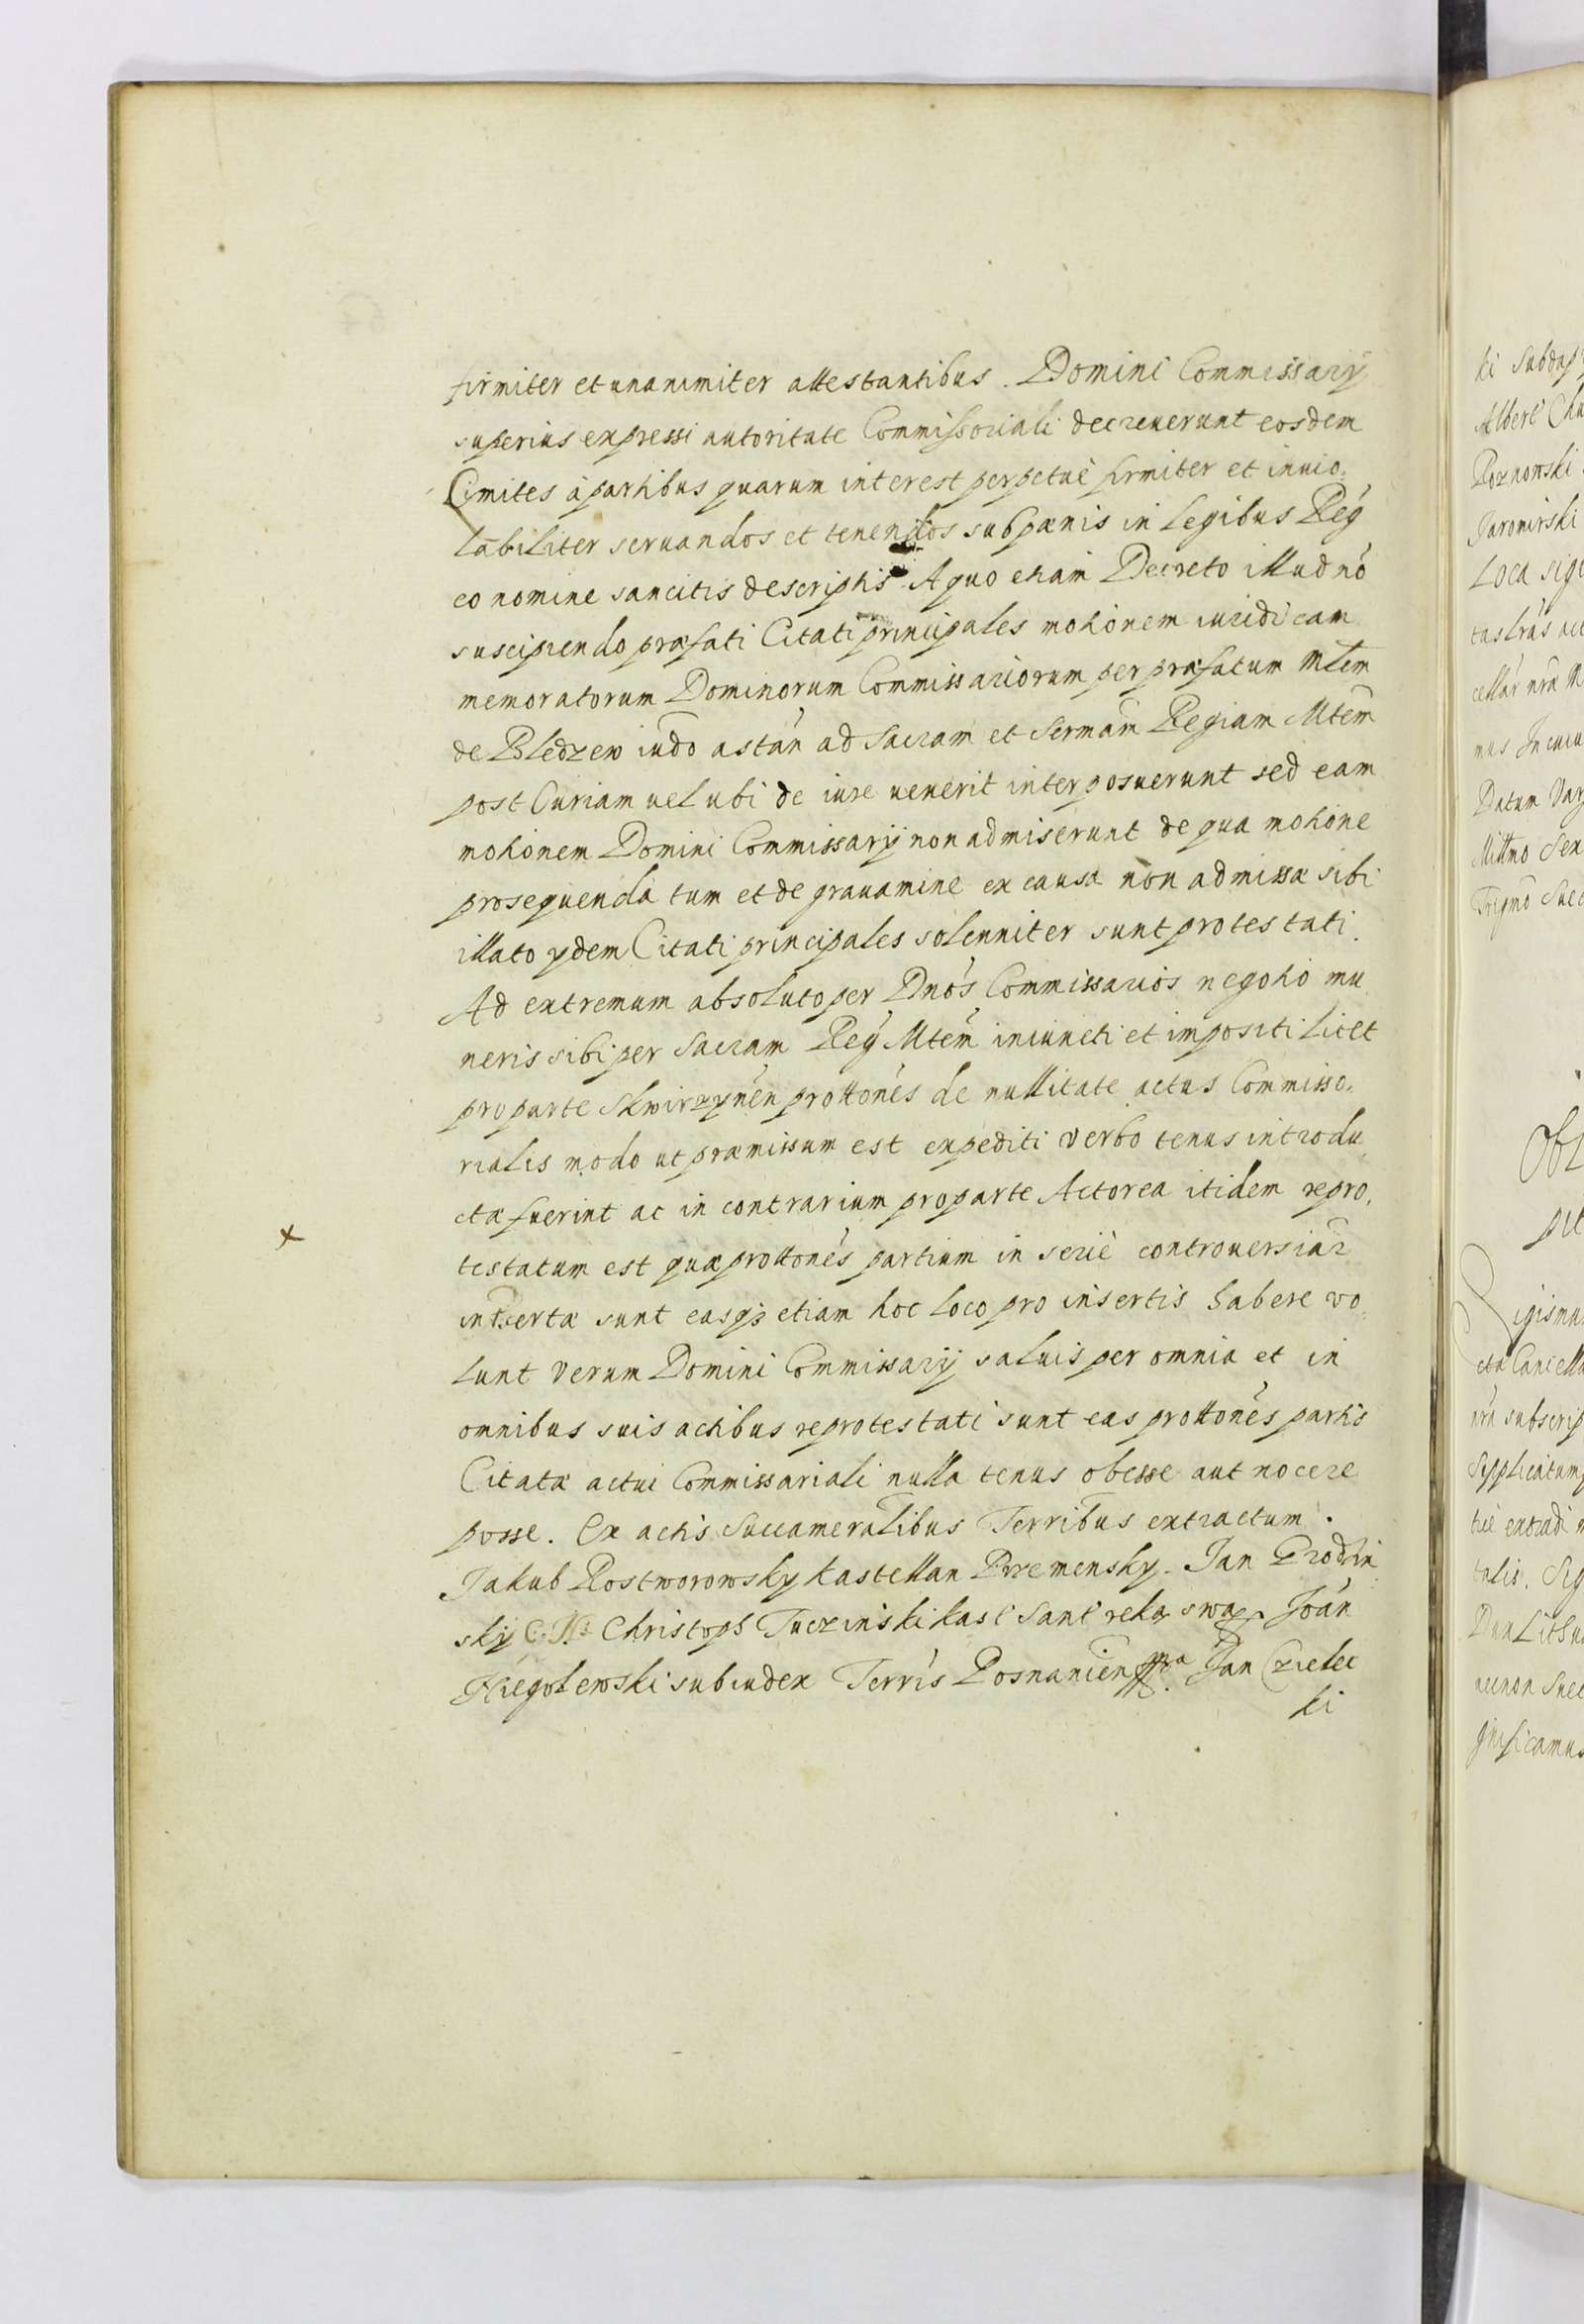 firmiter et unanimiter attestantibus. Domini Commissarij
superius expressi autoritate Commissoriali decreuerunt eosdem
Limites à partibus quarum interest perpetuè firmiter et inuio,
labiliter seruandos et tenendos sub pænis in legibus Reg
eo nomine sancitis descriptis A quo etiam Decreto illud nõ
suscipiendo præfati Citati principales motionem iuridicam
memoratorum Dominorum Commissariorum per præfatum Mtem
de Bledzew iudõ astan ad Sacram et Sermam Regiam Mtem
post Curiam uel ubi de iure uenerit interposuerunt sed eam
motionem Domini Commissarij non admiserunt de qua motione
prosequenda tum et de grauamine ex causa non admissæ sibi
illato ydem Citati principales solenniter sunt protestati.
Ad extremum absoluto per Dnos Commissarios negotio mu
neris sibi per Sacram Reg Mtem iniuncti et impositi licet
pro parte Skwirzynen prottones de nullitate actus Commisso,
rialis modo ut præmissum est expediti verbo tenus introdu
ctæ fuerint ac in contrarium pro parte Actorea itidem repro,
testatum est quæ prottones partium in serie controuersiar
insertæ sunt easq3 etiam hoc loco pro insertis habere vo
lunt verum Domini Commissarij saluis per omnia et in
omnibus suis actibus reprotestati sunt eas prottones partis
Citatæ actui Commissariali nulla tenus obesse aut nocere
posse. Ex actis Succameralibus Terribus extractum.
Jakub Rostworowsky kastellan Przemensky. Jan Brodzin
sky Christoph Tuczinski kast Sant reką swą Joan
Niegolewski subiudex Terris Posnanien Jan Czielec
ki
x
ki Subdap
Albert Chu
Poznowski
Jaromirski
Loca sigi
tas lras act
cellar nra M
nus In cuiu
Datum Var
Millmo Sex
Trigmo Suec
Obl
pit
Sigismun
cta Cancella
nra subscrip
Supplicatum
tie extradi
talis. Sig
Dux Lithu
necnon Suec